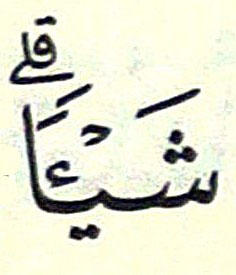 شَيْـًٔاۗ